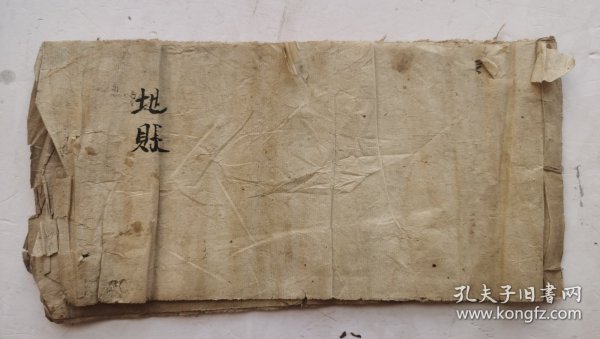 地
賬
孔夫子旧書网
www.kongfz.com